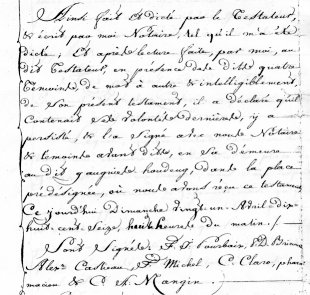 Ainsi fait et dicté par le Testateur,
& écrit par moi Notaire, tel qu'il m'a été
dicté, Et après lecture faite, par moi, au
dit Testateur, en présence des dits quatre
Témoins, de mot à autre & intelligiblement,
de son présent testament, il a déclaré qu'il
Contenait ses volontés dernières, y a
persisté, & l'a Signé avec nous Notaire
& témoins avant dits, en sa demeure
au dit Haudeng, dans la place
prédésignée, où nous avons reçu ce testament
Ce jourd'hui Dimanche Vingt-un Avril dix-
huit-cent-seize, huit heures du matin./.
Sont Signés: F. J. Tourbain,
Alex Casteau, Michel, C. Claro, phar
macien & C. A. Mangin.